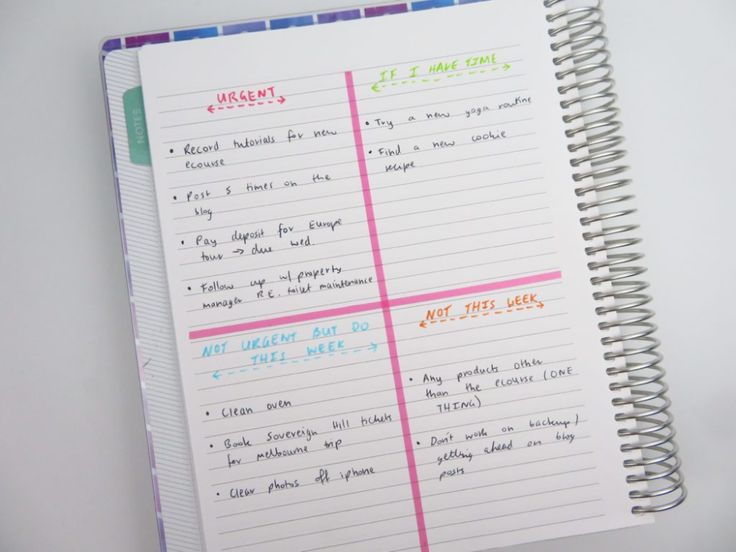 NOTES
URGENT
• Record tutorials for new
ecourse
• Post 5 times on the
blog
• Pay deposit for Europe
tour → due Wed.
• Follow up w/ property
manager R.E. toilet maintenance
IF I HAVE TIME
• Try a new yoga routine
• Find a new cookie
recipe
NOT URGENT BUT DO
THIS WEEK
• Clean oven
• Book Sovereign Hill tickets
for melbourne trip
• Clear photos off iphone
NOT THIS WEEK
• Any products other
than the ecourse (ONE
THING)
• Don't work on backup/
getting ahead on blog
posts